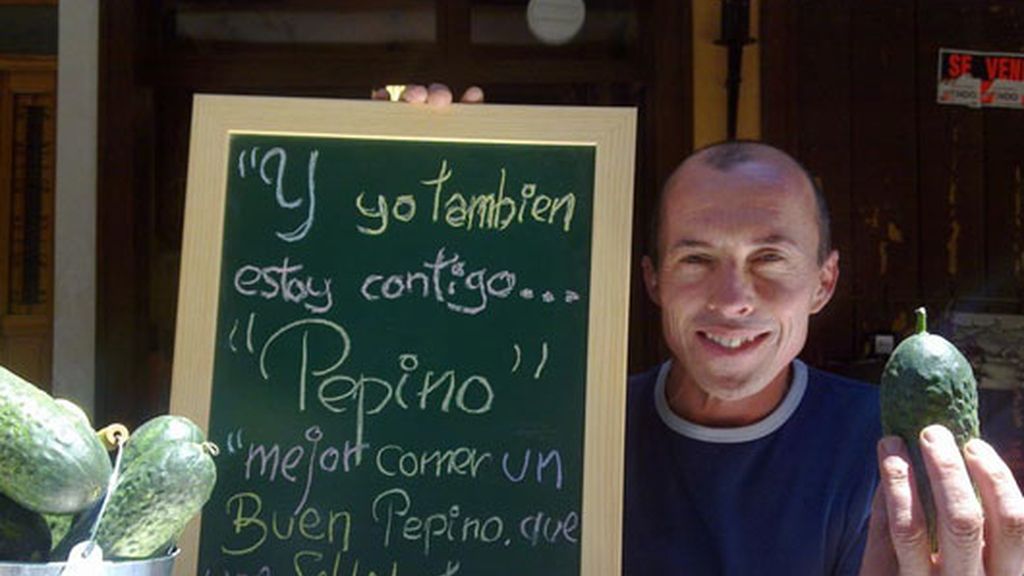 "Y yo tambien
estoy contigo...
"Pepino"
"mejor comer un
Buen Pepino, que
SE VEN